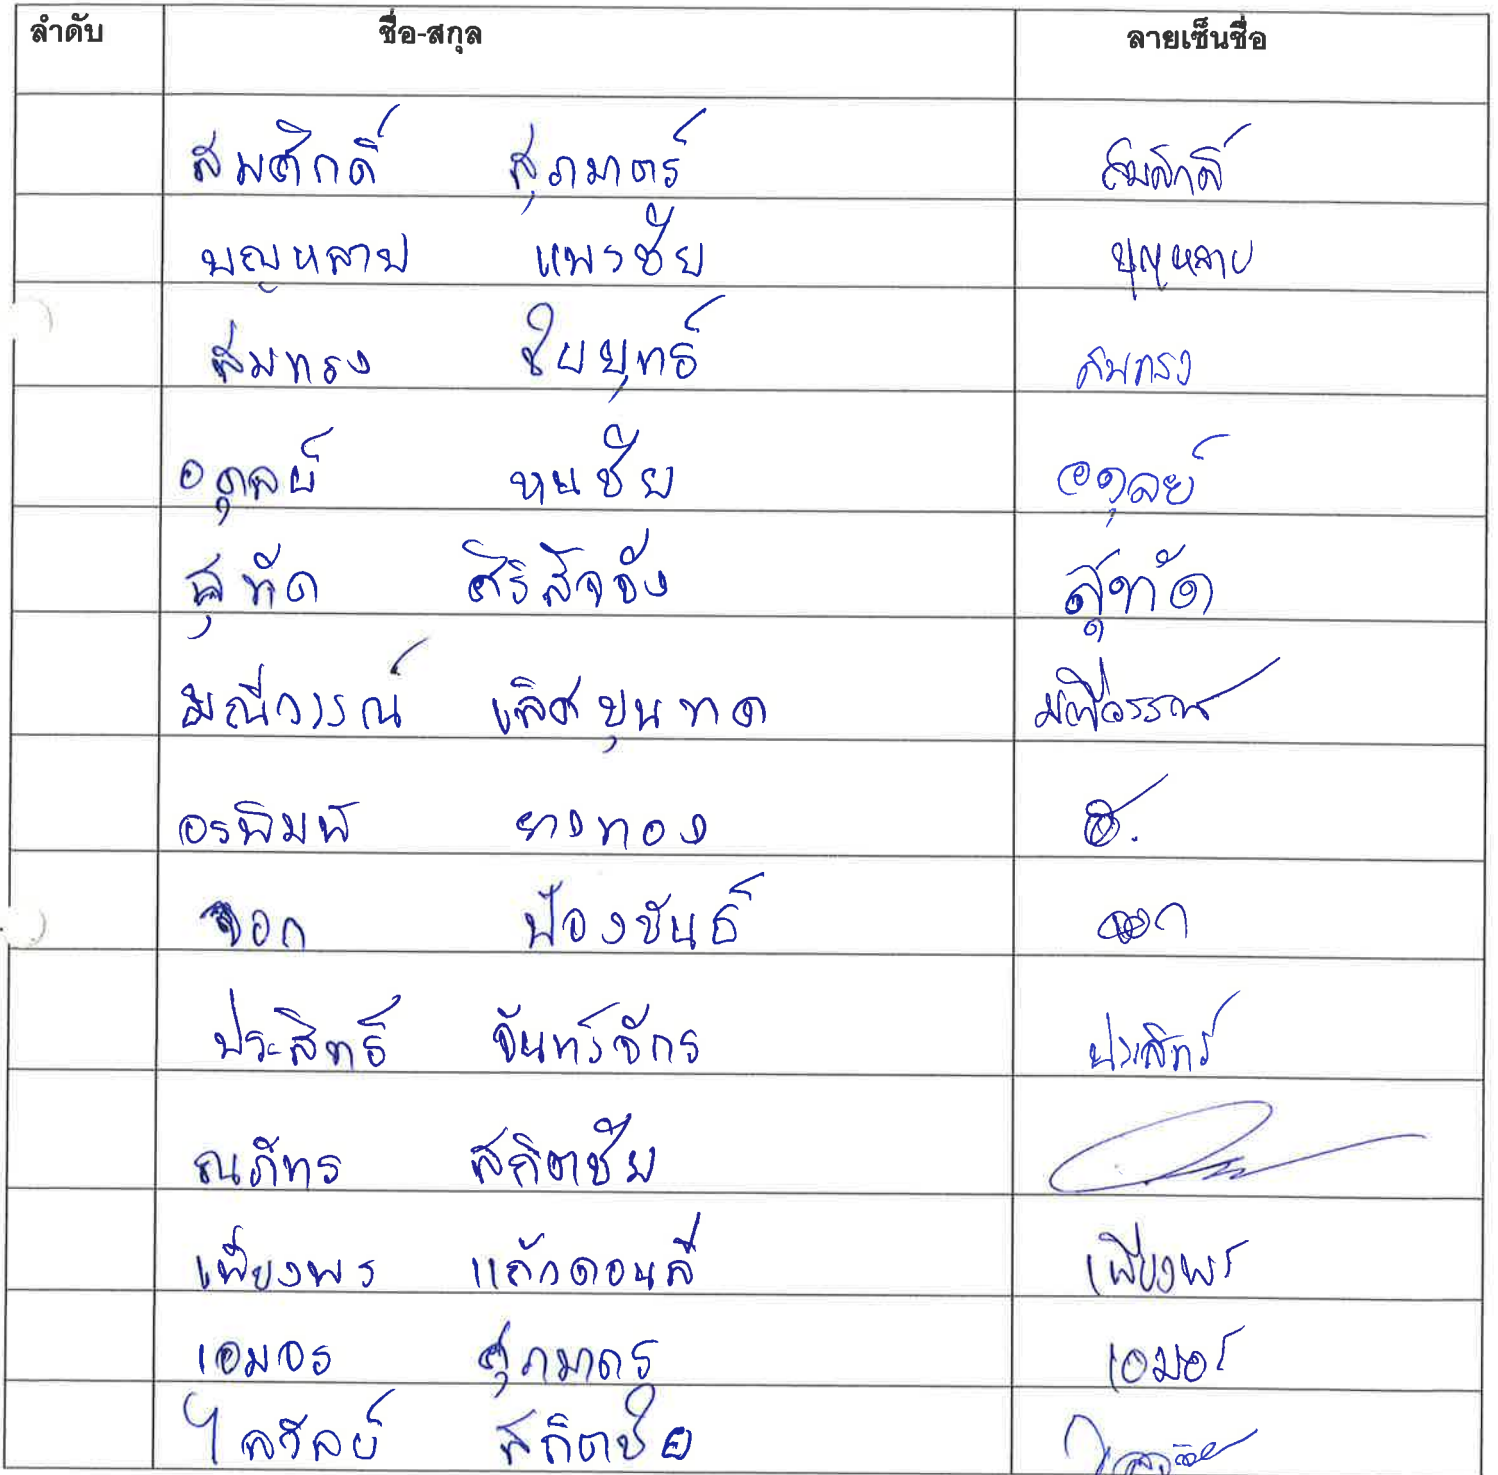 ลำดับ ชื่อ-สกุล ลายเซ็นชื่อ
สมศักดิ์ สุภมาตร์ สมศักดิ์
บุญหลาย แพงชัย บุญหลาย
สมทรง ไชยยุทธ์ สมทรง
อดุลย์ หนชัย อดุลย์
สุทัด ศิริสัจจัง สุทัด
มณีวรรณ์ เลิศขุนทด มณีวรรณ
อรพิมพ์ ยางทอง อ.
จอก ป้องขันธ์ จอก
ประสิทธิ์ จันทร์จักร ประสิทธิ์
ณภัทร สถิตชัย
เพียงพร แก้วดอนลี เพียงพร
เอมอร สุภมาตร เอมอร
ไลวัลย์ สถิตชัย